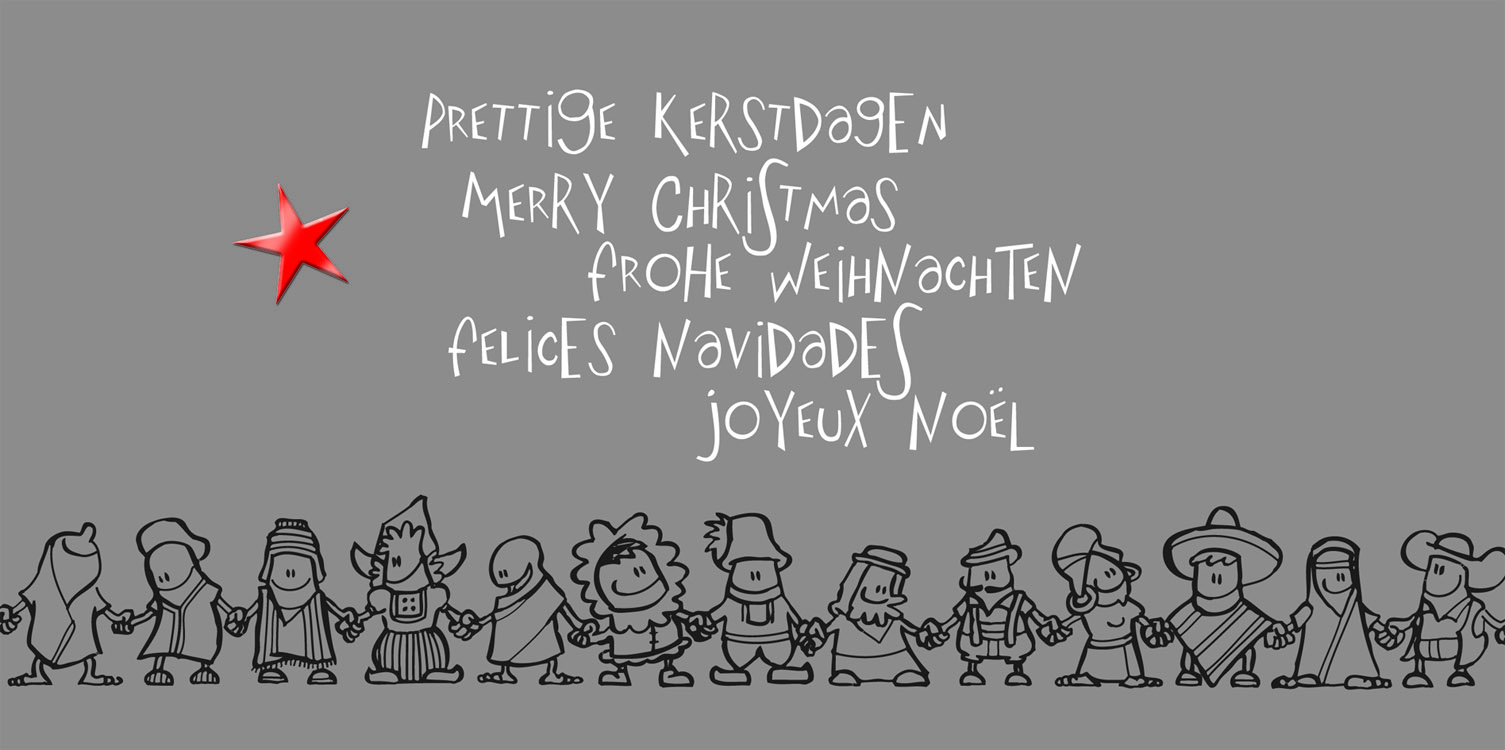 PRETTIGE KERSTDAGEN
MERRY CHRISTMAS
FROHE WEIHNACHTEN
FELICES NAVIDADES
JOYEUX NOËL